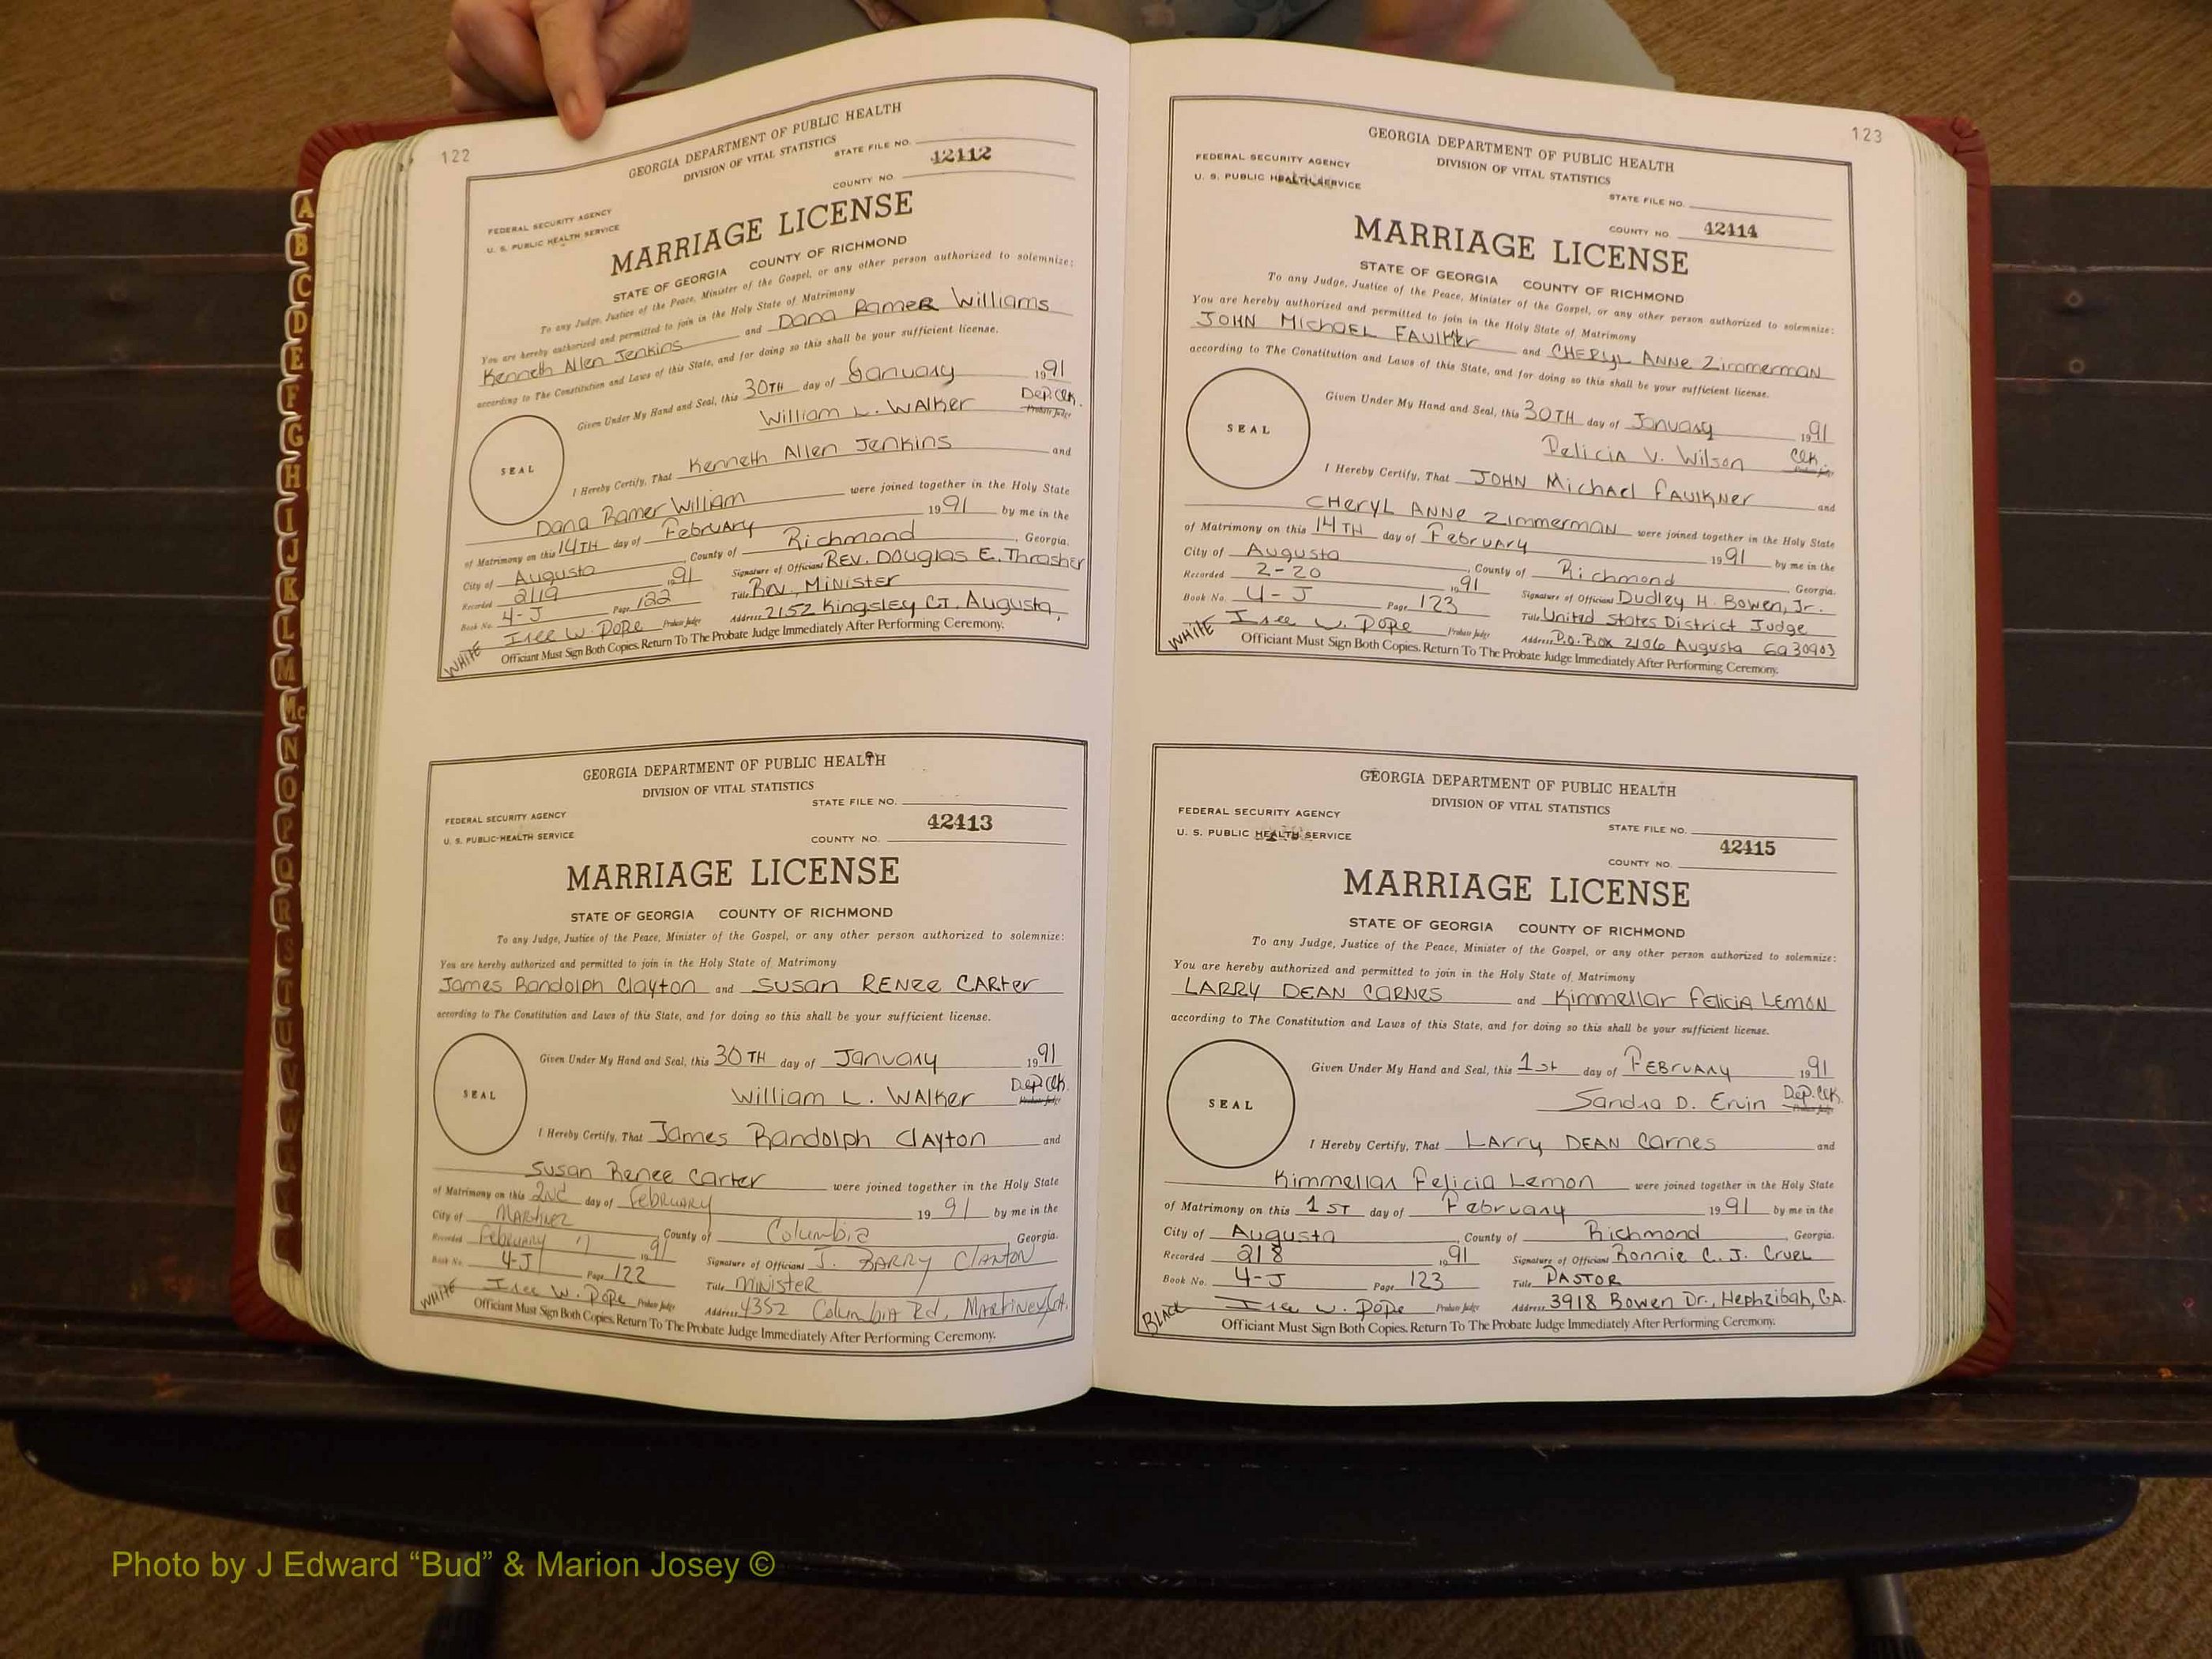 122
GEORGIA DEPARTMENT OF PUBLIC HEALTH
DIVISION OF VITAL STATISTICS
STATE FILE NO.
42412
COUNTY NO.
FEDERAL SECURITY AGENCY
U. S. PUBLIC HEALTH SERVICE
MARRIAGE LICENSE
STATE OF GEORGIA COUNTY OF RICHMOND
To any Judge, Justice of the Peace, Minister of the Gospel, or any other person authorized to solemnize:
You are hereby authorized and permitted to join in the Holy State of Matrimony
Kenneth Allen Jenkins and Dana Ramer Williams
according to The Constitution and Laws of this State, and for doing so this shall be your sufficient license.
Given Under My Hand and Seal, this 30TH day of January 1991
William L. Walker Dep. Clk. Probate Judge
SEAL
I Hereby Certify, That Kenneth Allen Jenkins and
Dana Ramer William were joined together in the Holy State
of Matrimony on this 14TH day of February 1991 by me in the
City of Augusta County of Richmond, Georgia.
Recorded 2/19 1991 Signature of Officiant Rev. Douglas E. Thrasher
Book No. 4-J Page 122 Title Rev., Minister
Isee W. Pope Probate Judge Address 2152 Kingsley CT. Augusta,
WHITE Officiant Must Sign Both Copies. Return To The Probate Judge Immediately After Performing Ceremony.
GEORGIA DEPARTMENT OF PUBLIC HEALTH
DIVISION OF VITAL STATISTICS
STATE FILE NO.
FEDERAL SECURITY AGENCY
42413
U. S. PUBLIC HEALTH SERVICE
COUNTY NO.
MARRIAGE LICENSE
STATE OF GEORGIA COUNTY OF RICHMOND
To any Judge, Justice of the Peace, Minister of the Gospel, or any other person authorized to solemnize:
You are hereby authorized and permitted to join in the Holy State of Matrimony
James Randolph Clayton and Susan RENEE CARTER
according to The Constitution and Laws of this State, and for doing so this shall be your sufficient license.
Given Under My Hand and Seal, this 30TH day of January 1991
William L. Walker Dep. Clk. Probate Judge
SEAL
I Hereby Certify, That James Randolph Clayton and
Susan Renee Carter were joined together in the Holy State
of Matrimony on this 2nd day of February 1991 by me in the
City of Martinez County of Columbia Georgia.
Recorded February 7 1991 Signature of Officiant J. Barry Clanton
Book No. 4-J Page 122 Title Minister
Isee W. Pope Probate Judge Address 4352 Columbia Rd, Martinez, GA.
WHITE Officiant Must Sign Both Copies. Return To The Probate Judge Immediately After Performing Ceremony.
123
GEORGIA DEPARTMENT OF PUBLIC HEALTH
DIVISION OF VITAL STATISTICS
FEDERAL SECURITY AGENCY
U. S. PUBLIC HEALTH SERVICE
STATE FILE NO.
COUNTY NO. 42414
MARRIAGE LICENSE
STATE OF GEORGIA COUNTY OF RICHMOND
To any Judge, Justice of the Peace, Minister of the Gospel, or any other person authorized to solemnize:
You are hereby authorized and permitted to join in the Holy State of Matrimony
JOHN Michael FAULKNER and CHERYL ANNE Zimmerman
according to The Constitution and Laws of this State, and for doing so this shall be your sufficient license.
Given Under My Hand and Seal, this 30TH day of January 1991
Delicia V. Wilson Clk. Probate Judge
SEAL
I Hereby Certify, That JOHN Michael Faulkner and
CHERYL ANNE Zimmerman were joined together in the Holy State
of Matrimony on this 14TH day of February 1991 by me in the
City of Augusta, County of Richmond, Georgia.
Recorded 2-20 1991 Signature of Officiant Dudley H. Bowen, Jr.
Book No. 4-J Page 123 Title United States District Judge
Isee W. Pope Probate Judge Address P.O. Box 2106 Augusta Ga 30903
WHITE Officiant Must Sign Both Copies. Return To The Probate Judge Immediately After Performing Ceremony.
GEORGIA DEPARTMENT OF PUBLIC HEALTH
DIVISION OF VITAL STATISTICS
FEDERAL SECURITY AGENCY
U. S. PUBLIC HEALTH SERVICE
STATE FILE NO.
42415
COUNTY NO.
MARRIAGE LICENSE
STATE OF GEORGIA COUNTY OF RICHMOND
To any Judge, Justice of the Peace, Minister of the Gospel, or any other person authorized to solemnize:
You are hereby authorized and permitted to join in the Holy State of Matrimony
LARRY DEAN CARNES and Kimmellar Felicia LEMON
according to The Constitution and Laws of this State, and for doing so this shall be your sufficient license.
Given Under My Hand and Seal, this 1st day of February 1991
Sandra D. Ervin Dep. Clk. Probate Judge
SEAL
I Hereby Certify, That Larry DEAN Carnes and
Kimmellar Felicia Lemon were joined together in the Holy State
of Matrimony on this 1ST day of February 1991 by me in the
City of Augusta, County of Richmond, Georgia.
Recorded 218 1991 Signature of Officiant Ronnie C. J. Cruel
Book No. 4-J Page 123 Title PASTOR
Isee W. Pope Probate Judge Address 3918 Bowen Dr., Hephzibah, GA.
BLACK Officiant Must Sign Both Copies. Return To The Probate Judge Immediately After Performing Ceremony.
A
B
C
D
E
F
G
H
I
J
K
L
M
Mc
N
O
P
Q
R
S
T
U
Photo by J Edward “Bud” & Marion Josey ©